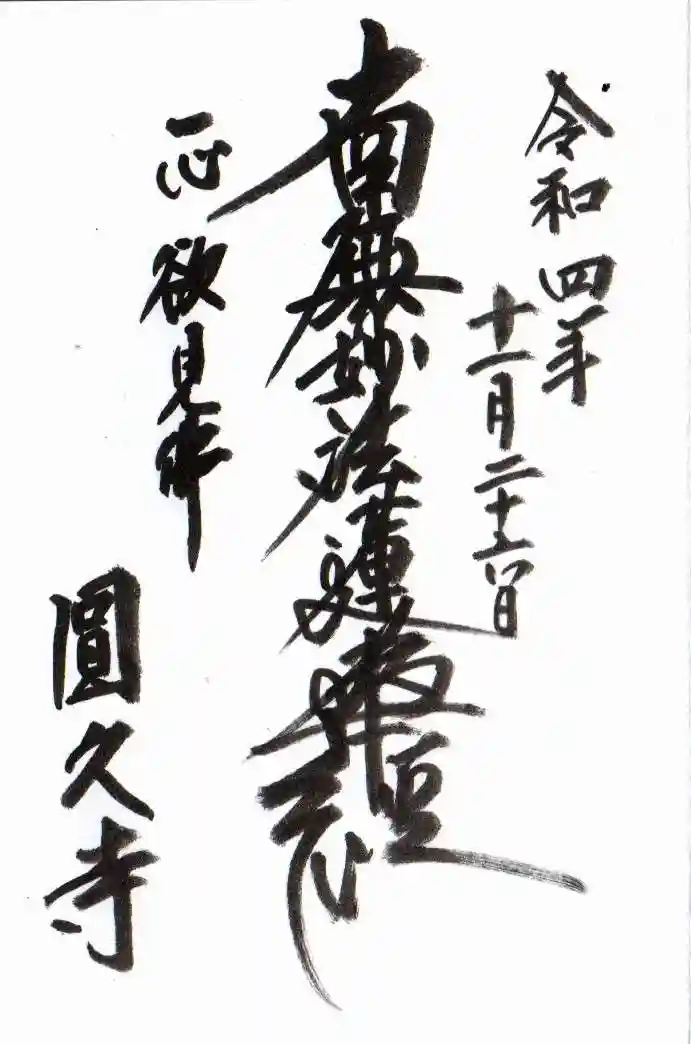 令和四年
十一月二十六日
南無妙法蓮華經
一心欲見佛
圓久寺